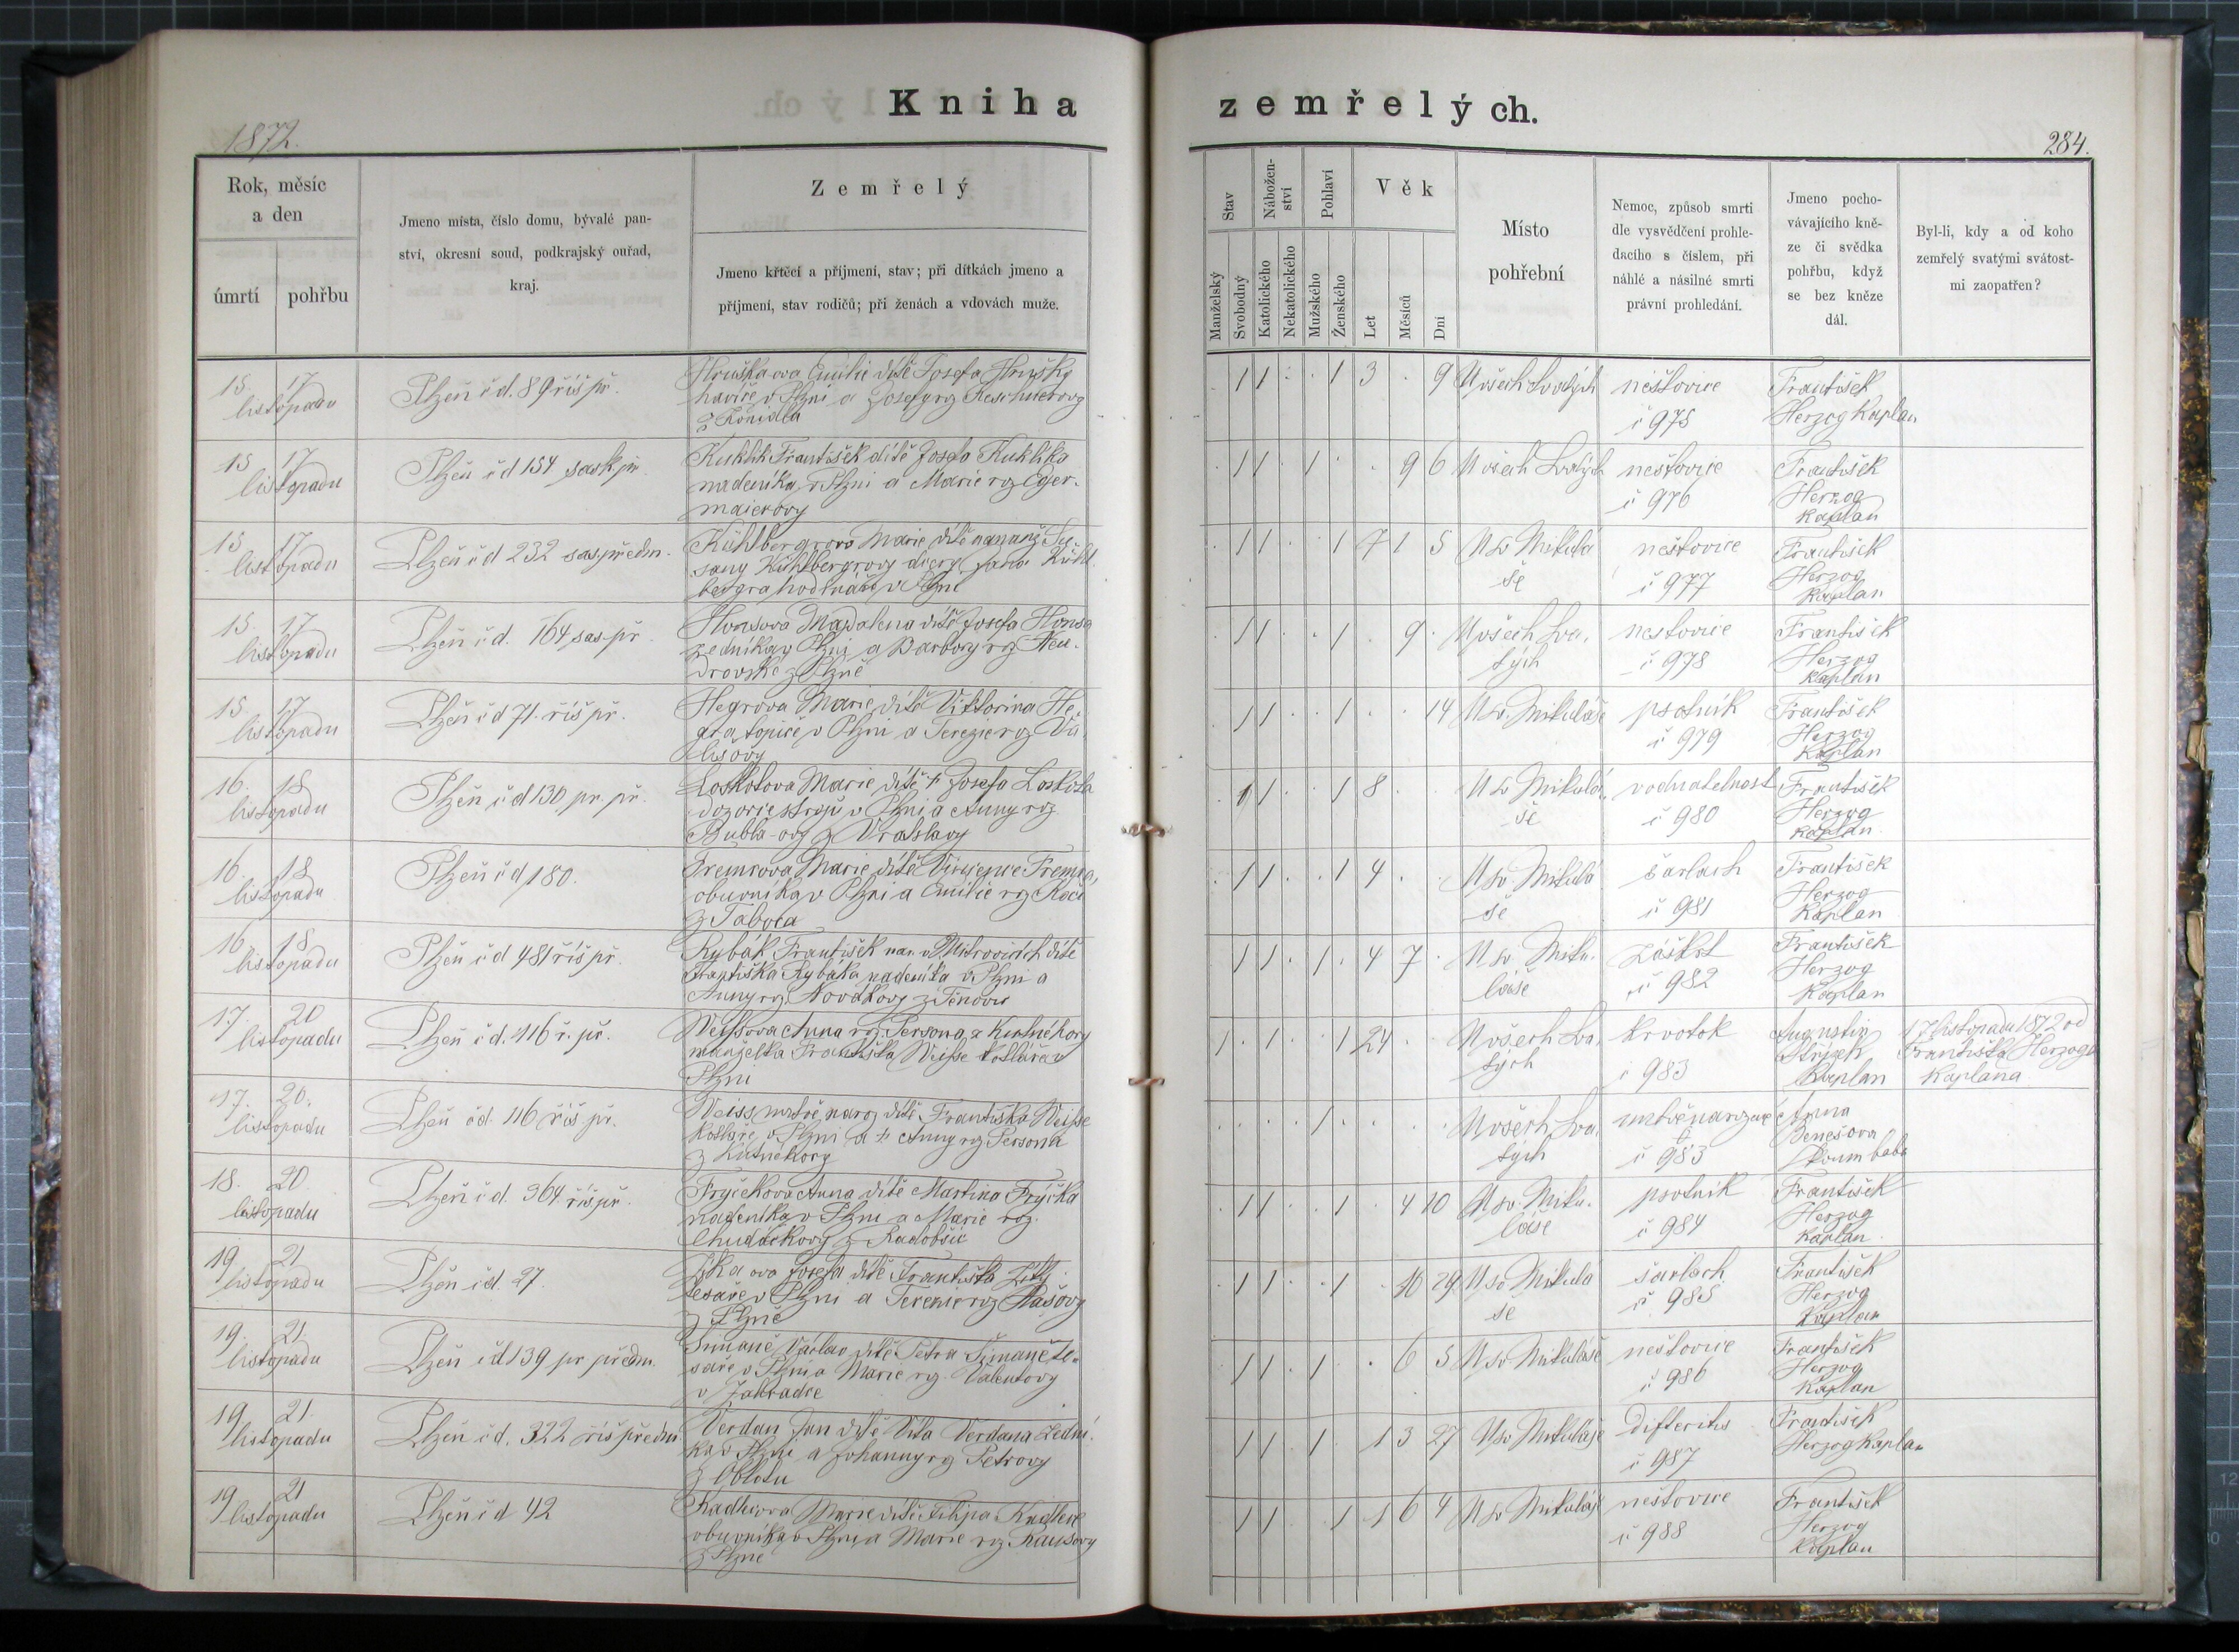 Kniha zemřelých.
1872.
284.
Rok, měsíc
a den
úmrtí
pohřbu
Jmeno místa, číslo domu, bývalé pan-
ství, okresní soud, podkrajský ouřad,
kraj.
Zemřelý
Jmeno křtěcí a příjmení, stav; při dítkách jmeno a
příjmení, stav rodičů; při ženách a vdovách muže.
Stav
Manželský
Svobodný
Nábožen-
ství
Katolického
Nekatolického
Pohlaví
Mužského
Ženského
Věk
Let
Měsíců
Dní
Místo
pohřební
Nemoc, způsob smrti
dle vysvědčení prohle-
dacího s číslem, při
náhlé a násilné smrti
právní prohledání.
Jmeno pocho-
vávajícího kně-
ze či svědka
pohřbu, když
se bez kněze
dál.
Byl-li, kdy a od koho
zemřelý svatými svátost-
mi zaopatřen?
15. 17
listopadu
Plzeň čd. 89 říš př.
Hruška ova Emilie dítě Josefa Hrušky
v Plzni a Josefy rz
1 1 1 3 9
U všech Svatých
neštovice
č 975
František
Herzog Kaplan
15 17
listopadu
Plzeň čd 154 sask př
Kuklík František dítě Josefa Kuklíka
nadeníka v Plzni a Marie rz Eger-
maierovy
1 1 1 9 6
U všech Svatých
neštovice
č 976
František
Herzog
Kaplan
15 17
listopadu
Plzeň čd 232 sas. předm.
Kühlbergrova Marie dítě Su-
sany Kühlbergrovy dcery Jana Kühl
bergra v Plzni
1 1 1 7 1 5
U sv Mikulá
še
neštovice
č 977
František
Herzog
Kaplan
15. 17
listopadu
Plzeň čd. 164 sas. př
Honsova Magdalena dítě Josefa Honsa
zedníka v Plzni a Barbory rz Neu-
drovské z Plzně
1 1 1 9
U všech Sva-
tých
neštovice
č 978
František
Herzog
Kaplan
15. 17
listopadu
Plzeň čd 71. říš př.
Hegrova Marie dítě Viktorina He-
gra topiče v Plzni a Terezie rz
1 1 1 14
U sv. Mikuláše
psotník
č 979
František
Herzog
Kaplan
16. 18
listopadu
Plzeň čd 130 pr. př.
Loskotova Marie dítě † Josefa Loskota
dozorce strojů v Plzni a Anny rz
z Vratslavy
1 1 1 8
U sv Mikulá-
še
vodnatelnost
č 980
František
Herzog
Kaplan
16. 18
listopadu
Plzeň čd 180.
Fremrova Marie dítě Vincence Fremra,
obuvníka v Plzni a Emilie rz Kočí
z Tabora
1 1 1 4
U sv. Mikulá
še
šarlach
č 981
František
Herzog
Kaplan
16 18
listopadu
Plzeň čd 481 říš př.
Rybák František nar. v Mitrovicích dítě
Františka Rybáka nadeníka v Plzni a
Anny rz Novákovy z Těnovic
1 1 1 4 7
U sv. Miku-
láše
Záškrt
č 982
František
Herzog
Kaplan
17. 20
listopadu
Plzeň čd. 116 ř. př.
Weissova Anna rz. Persona z Kutnéhory
manželka Františka Weisse kotláře v
Plzni
1 1 1 24
U všech Sva-
tých
krvotok
č 983
Augustin
Kaplan
17 listopadu 1872 od
Františka Herzoga
Kaplana
17. 20.
listopadu
Plzeň čd. 116 říš př.
Weiss mrtvě naroz dítě Františka Weisse
kotláře v Plzni a † Anny rz Persona
z Kutnéhory
1
U všech Sva-
tých
mrtvě narozené
č 983
Anna
Benešova
zkoum baba
18. 20
listopadu
Plzeň čd. 364 říš. př.
Fryčkova Anna dítě Martina Fryčka
nadeníka v Plzni a Marie rz.
Chudáčkovy z Radobčic
1 1 1 4 10
U sv. Miku-
láše
psotník
č 984
František
Herzog
Kaplan
19 21
listopadu
Plzeň čd. 27.
ova Josefa dítě Františka
tesaře v Plzni a Terezie rz
z Plzně
1 1 1 10 29
U sv Mikulá
še
šarlach
č 985
František
Herzog
Kaplan
19. 21
listopadu
Plzeň čd 139 pr předm.
Šimaně Václav dítě Petra Šimaně te-
saře v Plzni a Marie rz. Valentovy
v Zahrádce
1 1 1 6 5
U sv Mikuláše
neštovice
č 986
František
Herzog
Kaplan
19 21.
listopadu
Plzeň čd. 322 říš předm
Verdan Jan dítě Víta Verdana zední-
ka v Plzni a Johanny rz Petrovy
z Oblotu
1 1 1 1 3 27
U sv Mikuláše
Difteritis
č 987
František
Herzog Kaplan
19 21
listopadu
Plzeň čd 42
Kadlecova Marie dítě Filipa Kadlece
obuvníka v Plzni a Marie rz. Rausovy
z Plzně
1 1 1 1 6 4
U sv Mikuláše
neštovice
č 988
František
Herzog
Kaplan